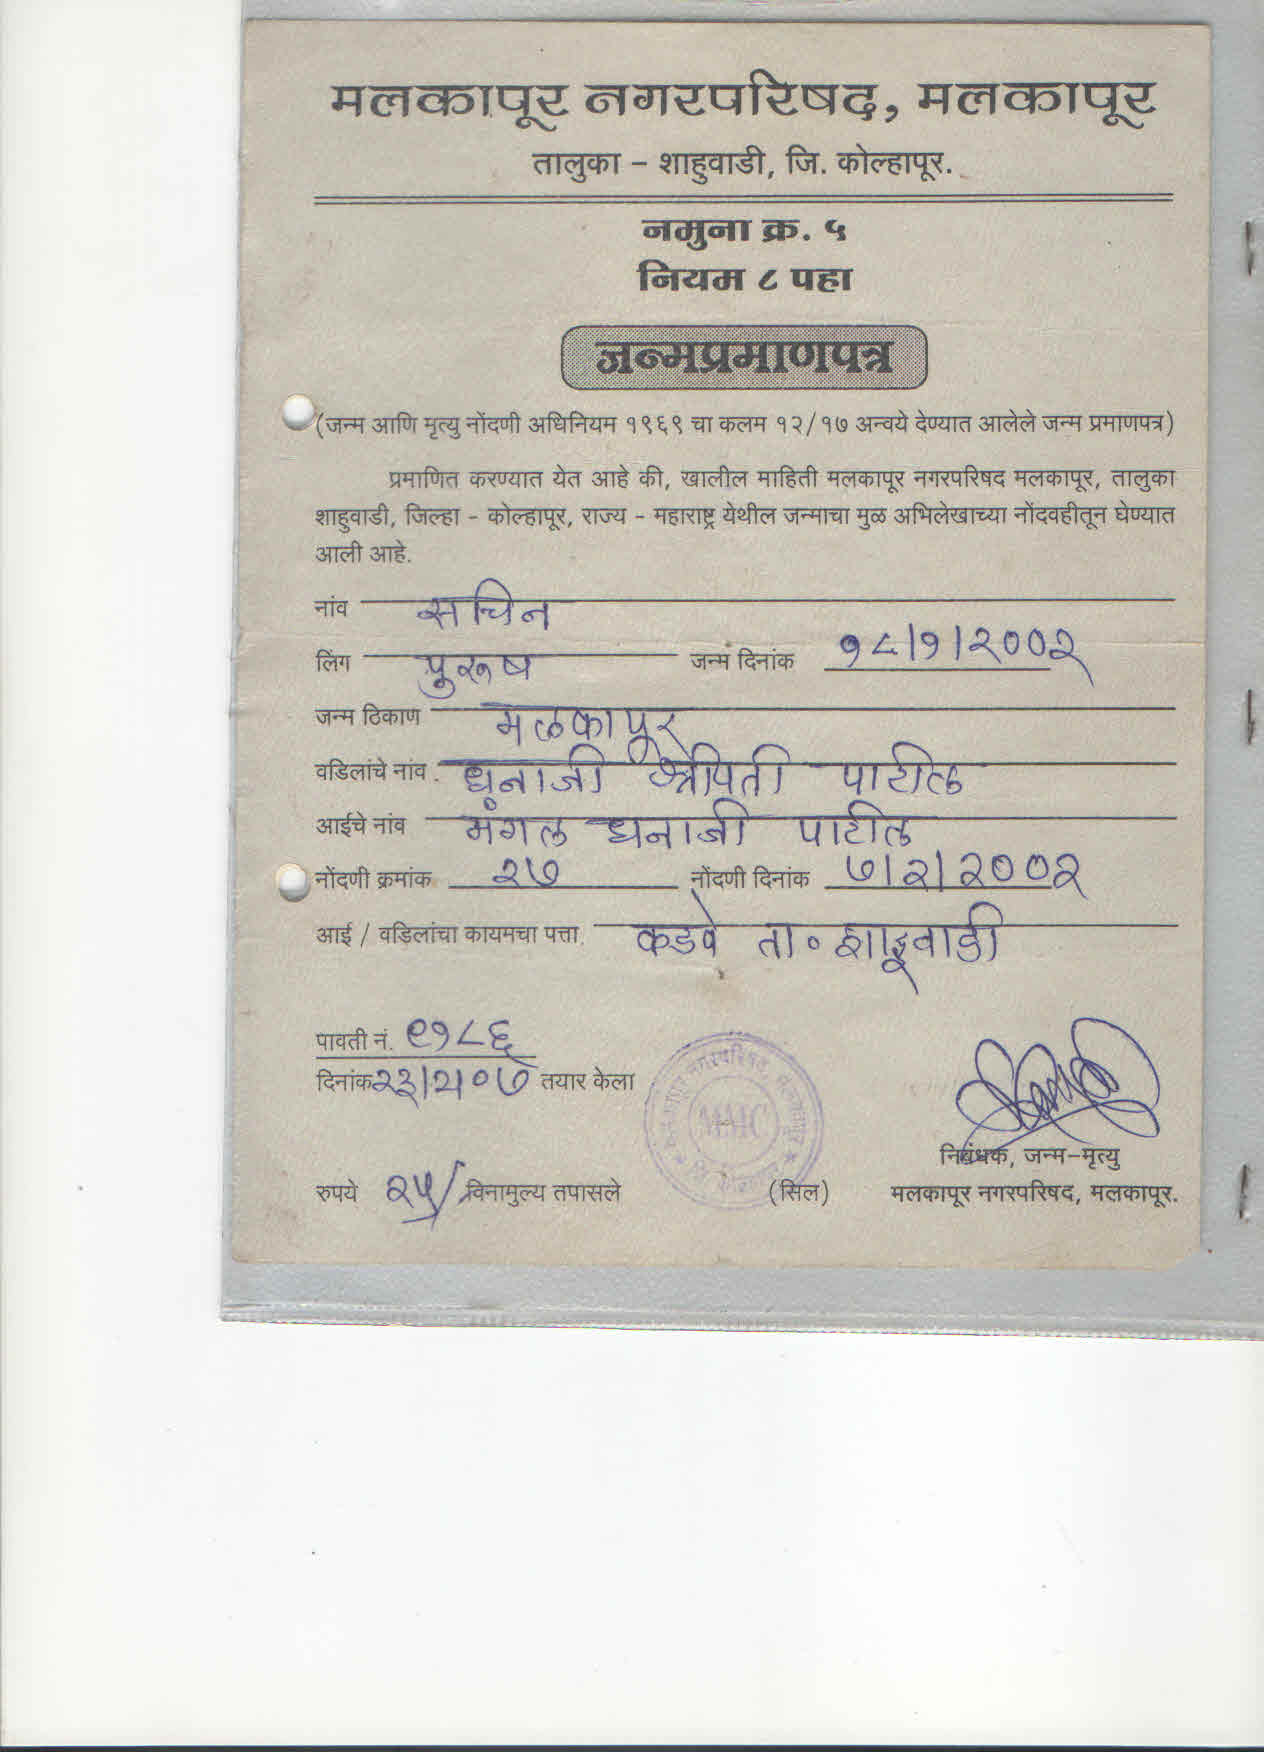 मलकापूर नगरपरिषद, मलकापूर
तालुका – शाहुवाडी, जि. कोल्हापूर.
नमुना क्र. ५
नियम ८ पहा
जन्मप्रमाणपत्र
(जन्म आणि मृत्यु नोंदणी अधिनियम १९६९ चा कलम १२/१७ अन्वये देण्यात आलेले जन्म प्रमाणपत्र)
प्रमाणित करण्यात येत आहे की, खालील माहिती मलकापूर नगरपरिषद मलकापूर, तालुका
शाहुवाडी, जिल्हा – कोल्हापूर, राज्य – महाराष्ट्र येथील जन्माचा मुळ अभिलेखाच्या नोंदवहीतून घेण्यात
आली आहे.
नांव सचिन
लिंग पुरूष जन्म दिनांक १८/१/२००२
जन्म ठिकाण मलकापूर
वडिलांचे नांव धनाजी श्रीपती पाटील
आईचे नांव मंगल धनाजी पाटील
नोंदणी क्रमांक २७ नोंदणी दिनांक ७/२/२००२
आई / वडिलांचा कायमचा पत्ता कडवे ता० शाहूवाडी
पावती नं. ९१८६
दिनांक २३/२/०७ तयार केला
मलकापूर नगरपरिषद, मलकापूर
MMC
जि. कोल्हापूर
निबंधक, जन्म–मृत्यु
रुपये २५/ विनामुल्य तपासले (सिल) मलकापूर नगरपरिषद, मलकापूर.